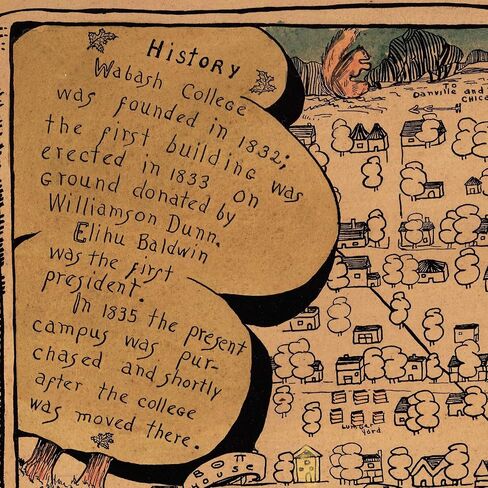 History
Wabash College
was founded in 1832;
the first building was
erected in 1833 on
ground donated by
Williamson Dunn.
Elihu Baldwin
was the first
president.
In 1835 the present
campus was pur-
chased and shortly
after the college
was moved there.
TO
Danville and
CHIC
Lumber
Yard
BOTT
House